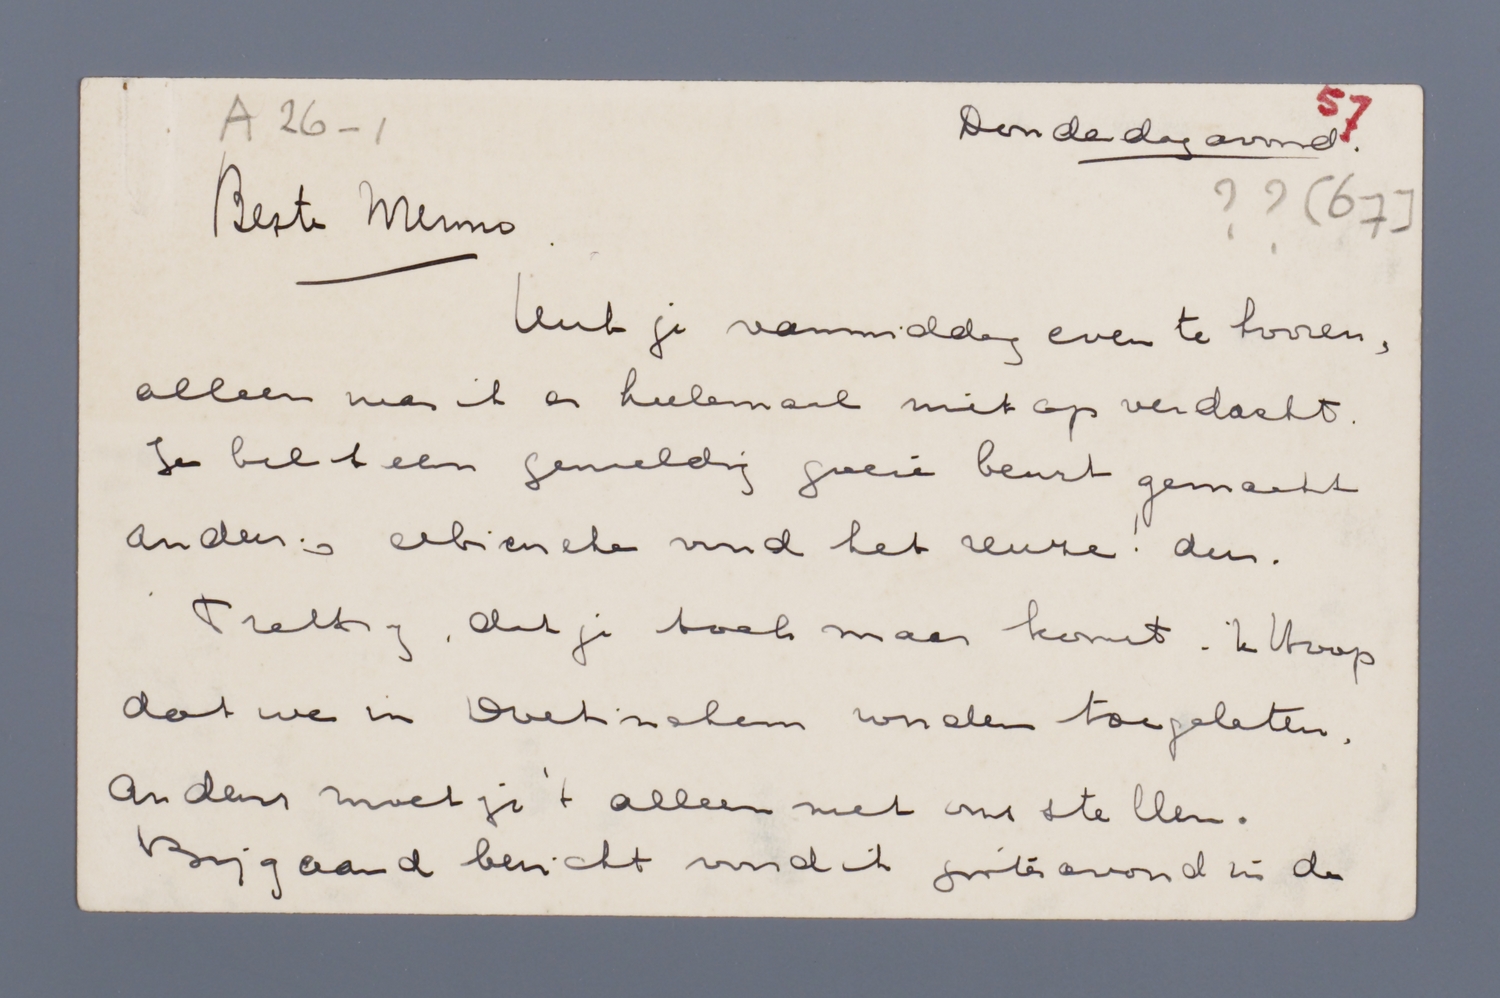 57
A 26-1
Donderdagavond.
? ? (67]
Beste Menno.
Leuk je vanmiddag even te hooren,
alleen was ik er heelemaal niet op verdacht.
Je hebt een geweldig goeie beurt gemaakt
anders, vond het reuze!
Prettig, dat je toch maar komt. 'k Hoop
dat we in Doetinchem worden toegelaten,
anders moet je 't alleen met ons stellen.
Bijgaand bericht vond ik gisteravond in de